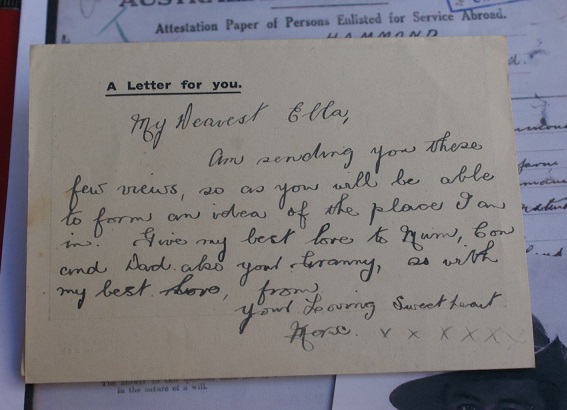 AUSTRAL
Attestation Paper of Persons Enlisted for Service Abroad.
HAMMOND
A Letter for you.
My Dearest Ella,
Am sending you these
few views, so as you will be able
to form an idea of the place I am
in. Give my best love to Mum, Con
and Dad also your Granny, so with
my best love, from
your Loving Sweetheart
x x x x x x
in the nature of a will.